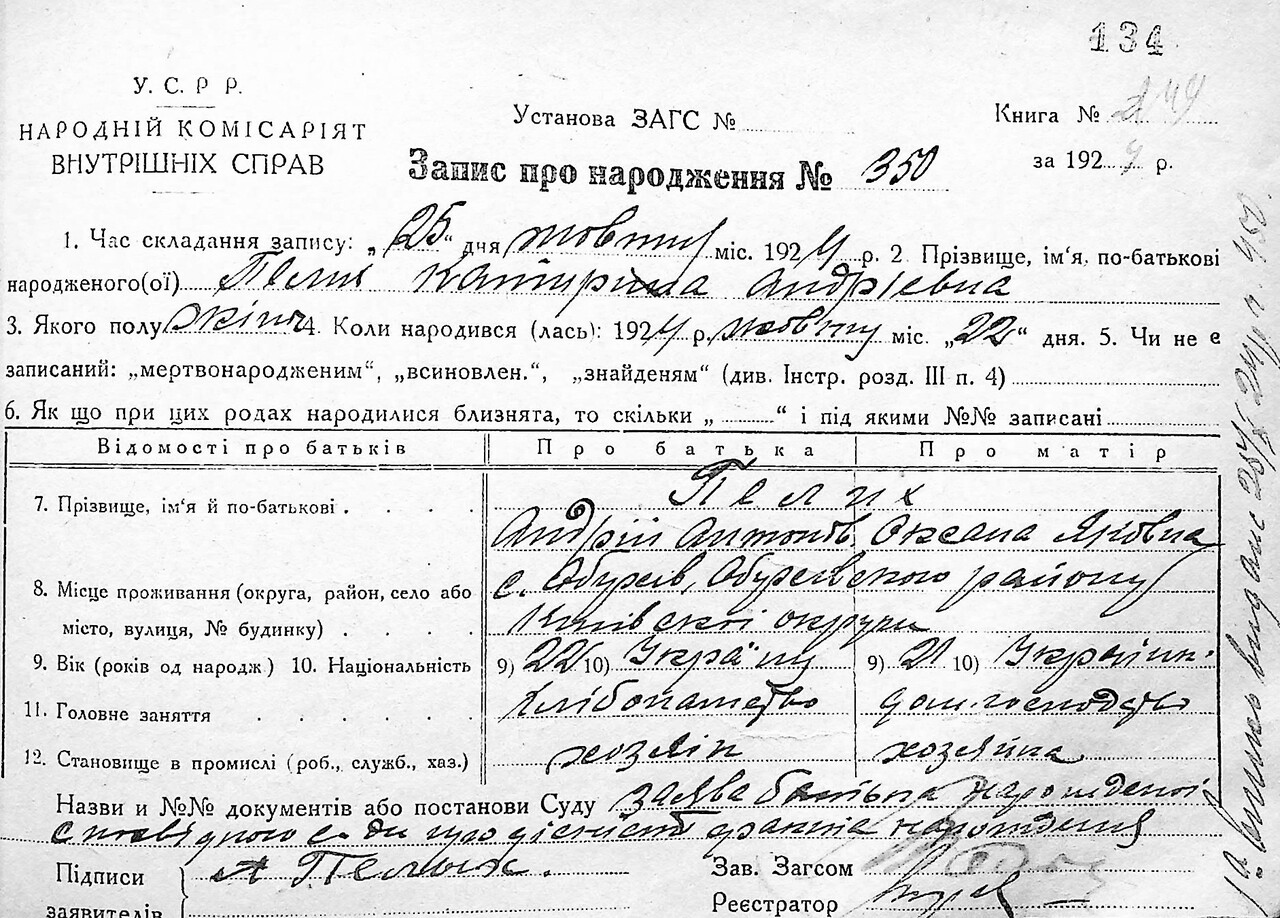 134
У. С. Р Р.
НАРОДНІЙ КОМІСАРІЯТ
ВНУТРІШНІХ СПРАВ
Установа ЗАГС №
Книга № 244
за 1924 р.
Запис про народження № 350
1. Час складання запису: „25“ дня жовтня міс. 1924 р. 2 Прізвище, ім‘я, по-батькові
народженого(ої) Пелих Катирина Андрієвна
3. Якого полу жіноч 4. Коли народився (лась): 1924 р. жовтня міс. „22“ дня. 5. Чи не є
записаний: „мертвонародженим“, „всиновлен.“, „знайденям“ (див. Інстр. розд. III п. 4)
6. Як що при цих родах народилися близнята, то скільки „ “ і під якими №№ записані
Відомості про батьків Про батька Про матір
7. Прізвище, ім‘я й по-батькові Пелих
Андрій Антонів Оксана Яковна
8. Місце проживання (округа, район, село або с. Обухів, Обухівського району
місто, вулиця, № будинку) Київскої округи
9. Вік (років од народж) 10. Національність 9) 22 10) Україну 9) 21 10) Українк.
11. Головне заняття хлібопаство дом. господство
12. Становище в промислі (роб., служб., хаз.) хозяін хозяйка
Назви и №№ документів або постанови Суду заява батька народженої
народження
Підписи А Пелых.
заявителів
Зав. Загсом
Реєстратор